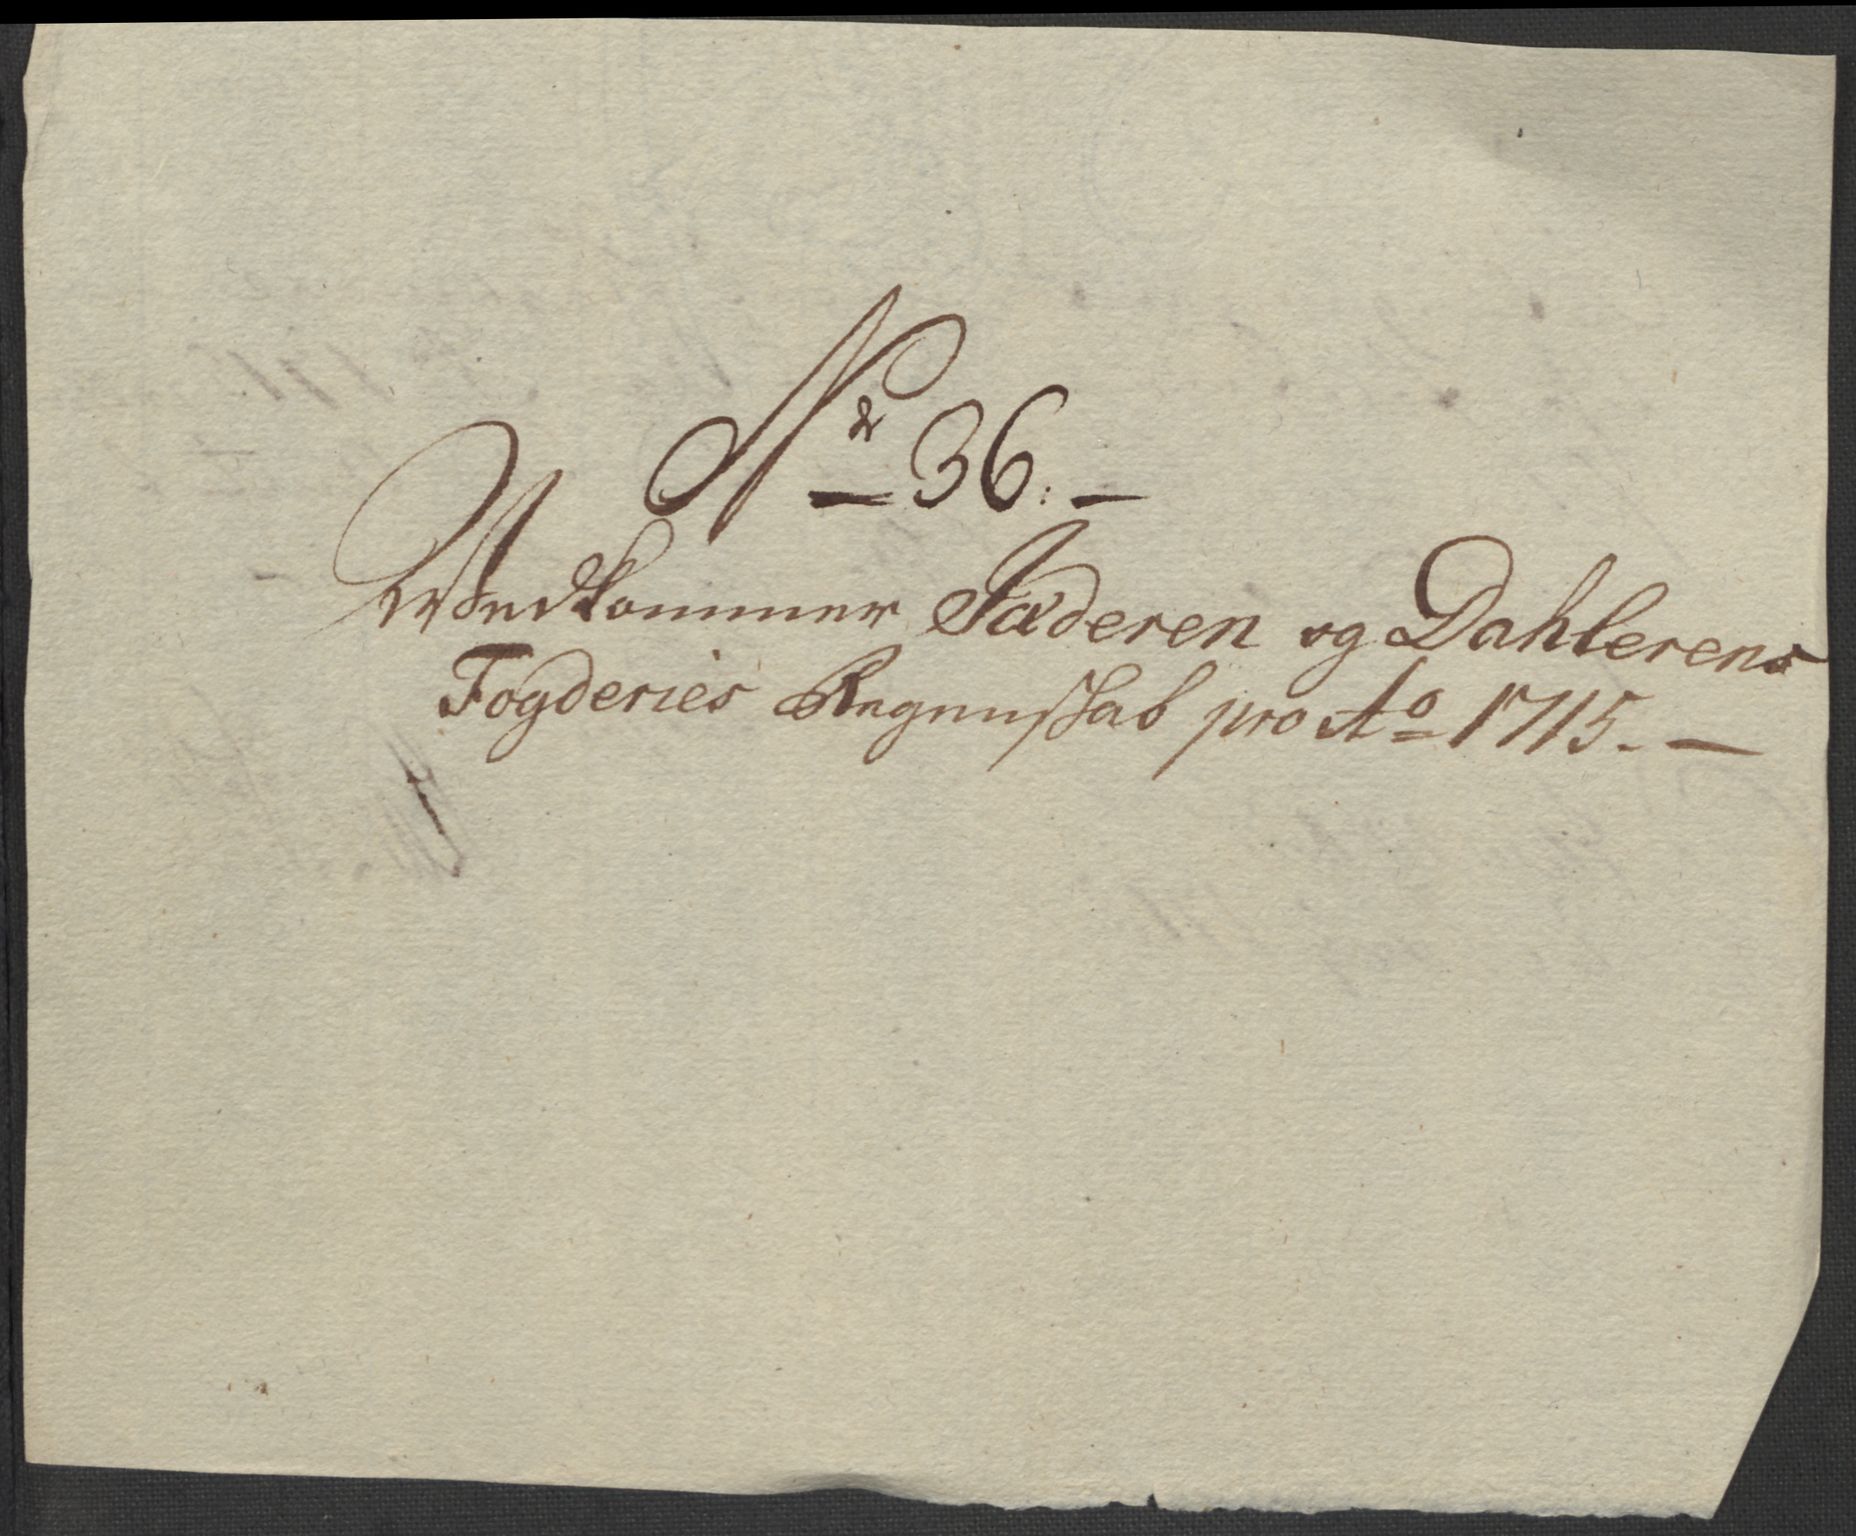 Nr 36:-
Vedkommer Jæderen og Dahlerens
Fogderies Regenskab pro Ao 1715.-